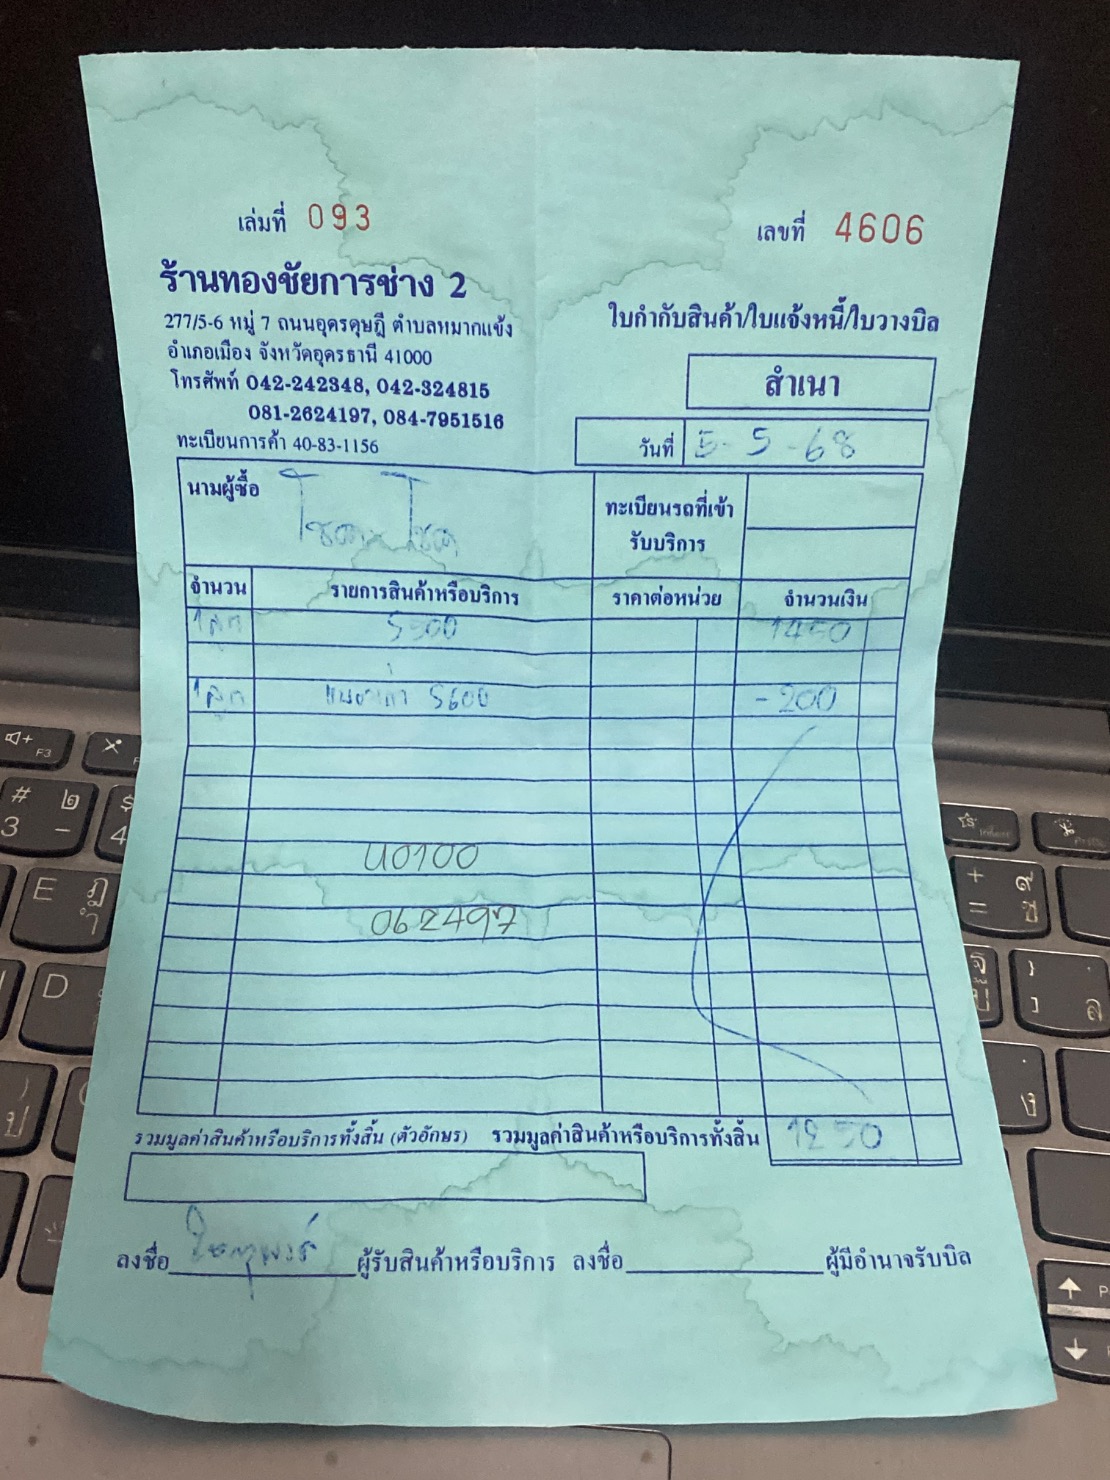 เล่มที่ 093
เลขที่ 4606
ร้านทองชัยการช่าง 2
277/5-6 หมู่ 7 ถนนอุดรดุษฎี ตำบลหมากแข้ง
อำเภอเมือง จังหวัดอุดรธานี 41000
โทรศัพท์ 042-242348, 042-324815
081-2624197, 084-7951516
ทะเบียนการค้า 40-83-1156
ใบกำกับสินค้า/ใบแจ้งหนี้/ใบวางบิล
สำเนา
วันที่ 5-5-68
นามผู้ซื้อ
ทะเบียนรถที่เข้า
รับบริการ
จำนวน รายการสินค้าหรือบริการ ราคาต่อหน่วย จำนวนเงิน
1 ลูก S500 1450
1 ลูก S600 -200
U0100
062497
รวมมูลค่าสินค้าหรือบริการทั้งสิ้น (ตัวอักษร) รวมมูลค่าสินค้าหรือบริการทั้งสิ้น 1250
ลงชื่อ ผู้รับสินค้าหรือบริการ ลงชื่อ ผู้มีอำนาจรับบิล
# ๒
3 -
$
4
F3
E ฎ
ำ
D
+ ๙
= ซ